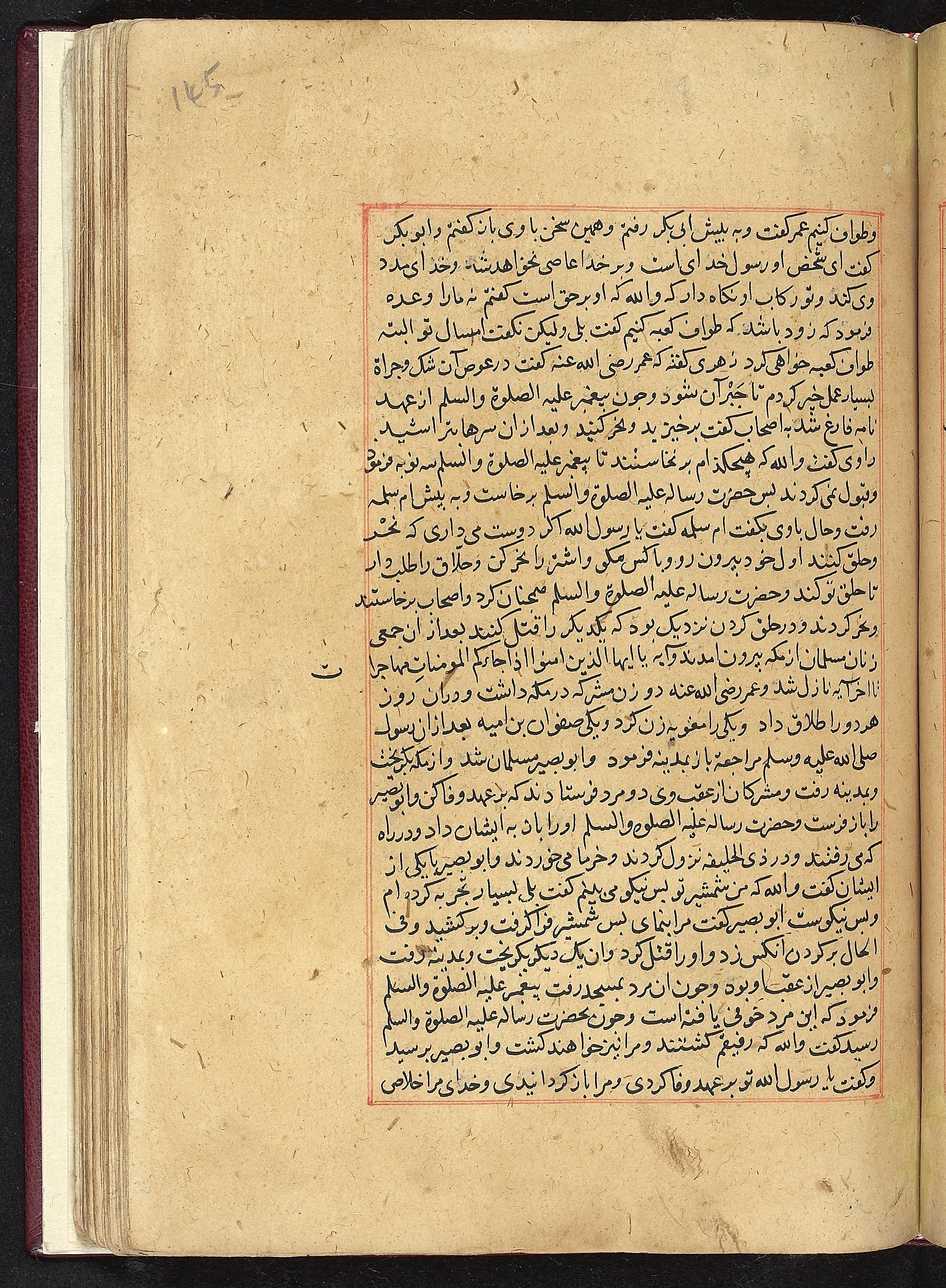 145
وطواف کنیم عمر کفت وبه پیش ابی بکر رفتم وهمین سخن با وی باز کفتم وابو بکر
کفت ای شخص او رسول خدای است وبر خدا عاصی نخواهد شد وخدای مدد
وی کند وتو رکاب او نکاه دار که والله که او بر حق است کفتم نه مارا وعده
فرمود که زود باشد که طواف کعبه کنیم کفت بلی ولیکن نکفت امسال تو البته
طواف کعبه خواهی کرد زهری کفته که عمر رضی الله عنه کفت در عوض آن شک وجراة
بسیار عمل خیر کردم تا جبر آن شود وچون پیغمبر علیه الصلوة والسلم از عهد
نامه فارغ شد به اصحاب کفت برخیزید ونحر کنید وبعد از ان سرها بتراشید
راوی کفت والله که هیچکدام بر نخاستند تا پیغمبر علیه الصلوة والسلم سه نوبه فرمود
وقبول نمی کردند بس حضرت رساله علیه الصلوة والسلم برخاست وبه پیش ام سلمه
رفت وحال باوی بکفت ام سلمه کفت یا رسول الله اکر دوست می داری که نحر
وحلق کنند اول خود بیرون رو وبا کس مکو واشتر را نحر کن وحلاق را طلب دار
تا حلق تو کند وحضرت رساله علیه الصلوة والسلم همچنان کرد واصحاب برخاستند
ونحر کردند ودر حلق کردن نزدیک بود که یکدیکر را قتل کنند بعد از ان جمعی
زنان مسلمان از مکه بیرون امدند وآیه یا ایها الذین امنوا اذا جاءکم المومنات مهاجرا
ت
تا اخر آیه نازل شد وعمر رضی الله عنه دو زن مشرکه در مکه داشت ودران روز
هر دو را طلاق داد ویکی را معویه زن کرد ویکی صفوان بن امیه بعد از ان رسول
صلی الله علیه وسلم مراجعة باز بمدینه فرمود وابو بصیر مسلمان شد واز مکه بکریخت
وبمدینه رفت ومشرکان از عقب وی دو مرد فرستادند که بر عهد وفا کن وابو بصیر
را باز فرست وحضرت رساله علیه الصلوه والسلم اورا باز به ایشان داد ودر راه
که می رفتند ودر ذی الحلیفه نزول کردند وخرما می خوردند وابو بصیر با یکی از
ایشان کفت والله که من شمشیر تو بس نیکو می بینم کفت بلی بسیار تجربه کرده ام
وبس نیکوست ابو بصیر کفت مرا بنمای بس شمشیر فرا کرفت وبر کشید وفی
الحال بر کردن انکس زد واو را قتل کرد وان یک دیکر بکریخت وبمدینه رفت
وابو بصیر از عقب او بود وچون ان مرد بمسجد رفت پیغمبر علیه الصلوة والسلم
فرمود که این مرد خوفی یافته است وچون بحضرت رساله علیه الصلوة والسلم
رسید کفت والله که رفیقم کشتند ومرا نیز خواهند کشت وابو بصیر برسید
وکفت یا رسول الله تو بر عهد وفا کردی ومرا باز کردانیدی وخدای مرا خلاص